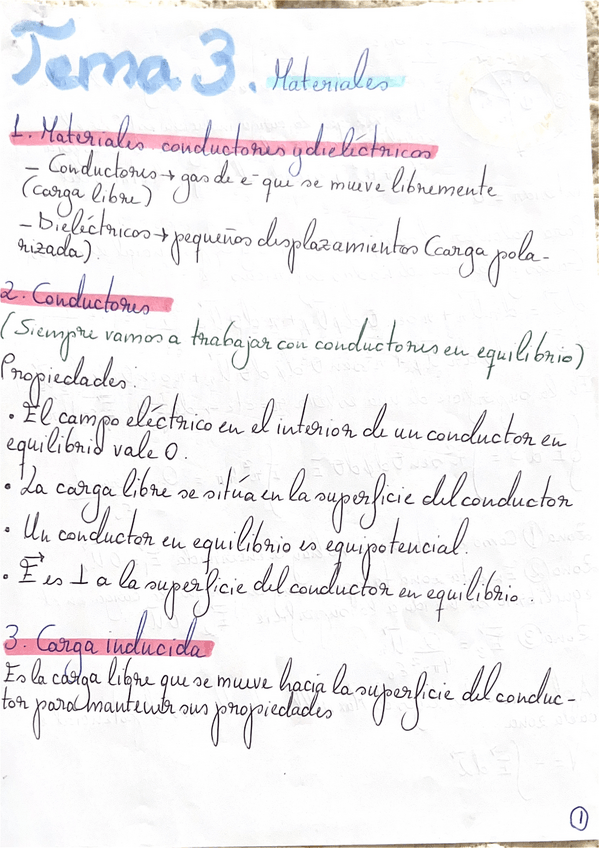 Tema 3. Materiales
1. Materiales conductores y dieléctricos
- Conductores → gas de e⁻ que se mueve libremente
(carga libre)
- Dieléctricos → pequeños desplazamientos (carga pola-
rizada).
2. Conductores
(Siempre vamos a trabajar con conductores en equilibrio)
Propiedades:
· El campo eléctrico en el interior de un conductor en
equilibrio vale 0.
· La carga libre se sitúa en la superficie del conductor
· Un conductor en equilibrio es equipotencial.
· E⃗ es ⊥ a la superficie del conductor en equilibrio.
3. Carga inducida
Es la carga libre que se mueve hacia la superficie del conduc-
tor para mantener sus propiedades
1